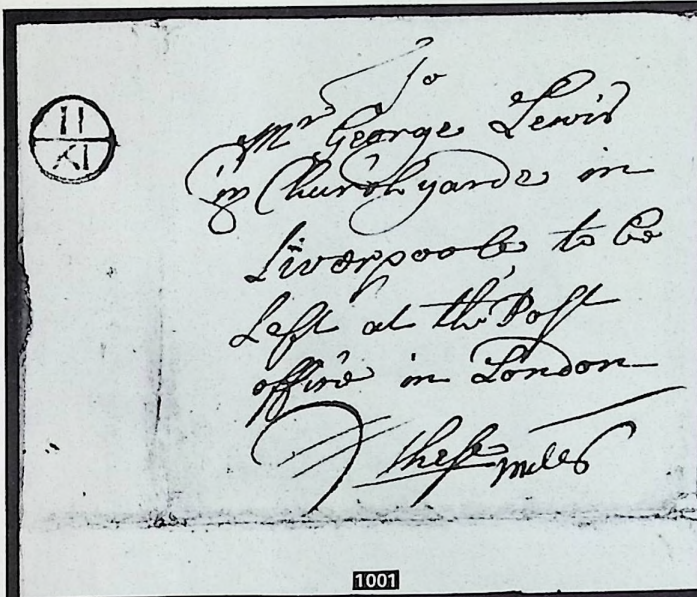 To
Mr George Lewis
in Churchyarde in
Liverpoole to be
Left at the Post
offine in London
these
11
XI
1001